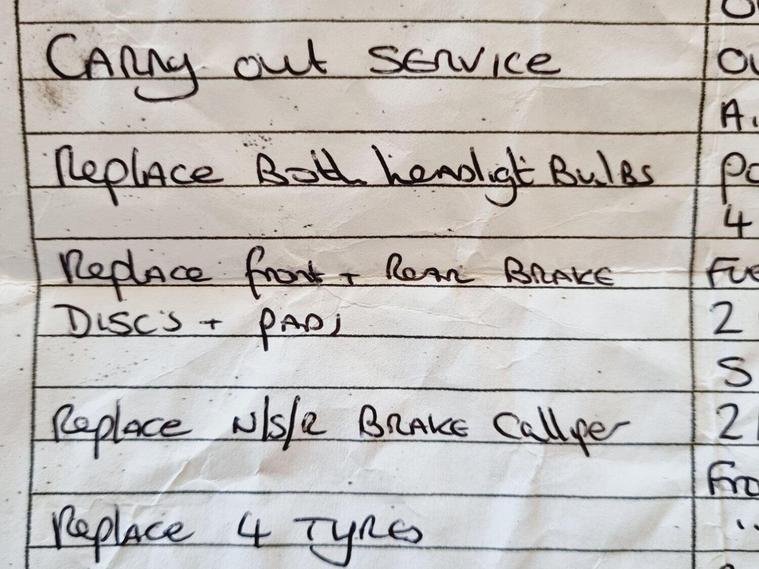 CARRY out SERVICE
Replace Both headligt Bulbs
Replace front + Rear BRAKE
DISC'S + PADS
Replace N/S/R BRAKE Calliper
Replace 4 TYRES
Ou
A.
Po
4
Fue
2
S
2
Fro